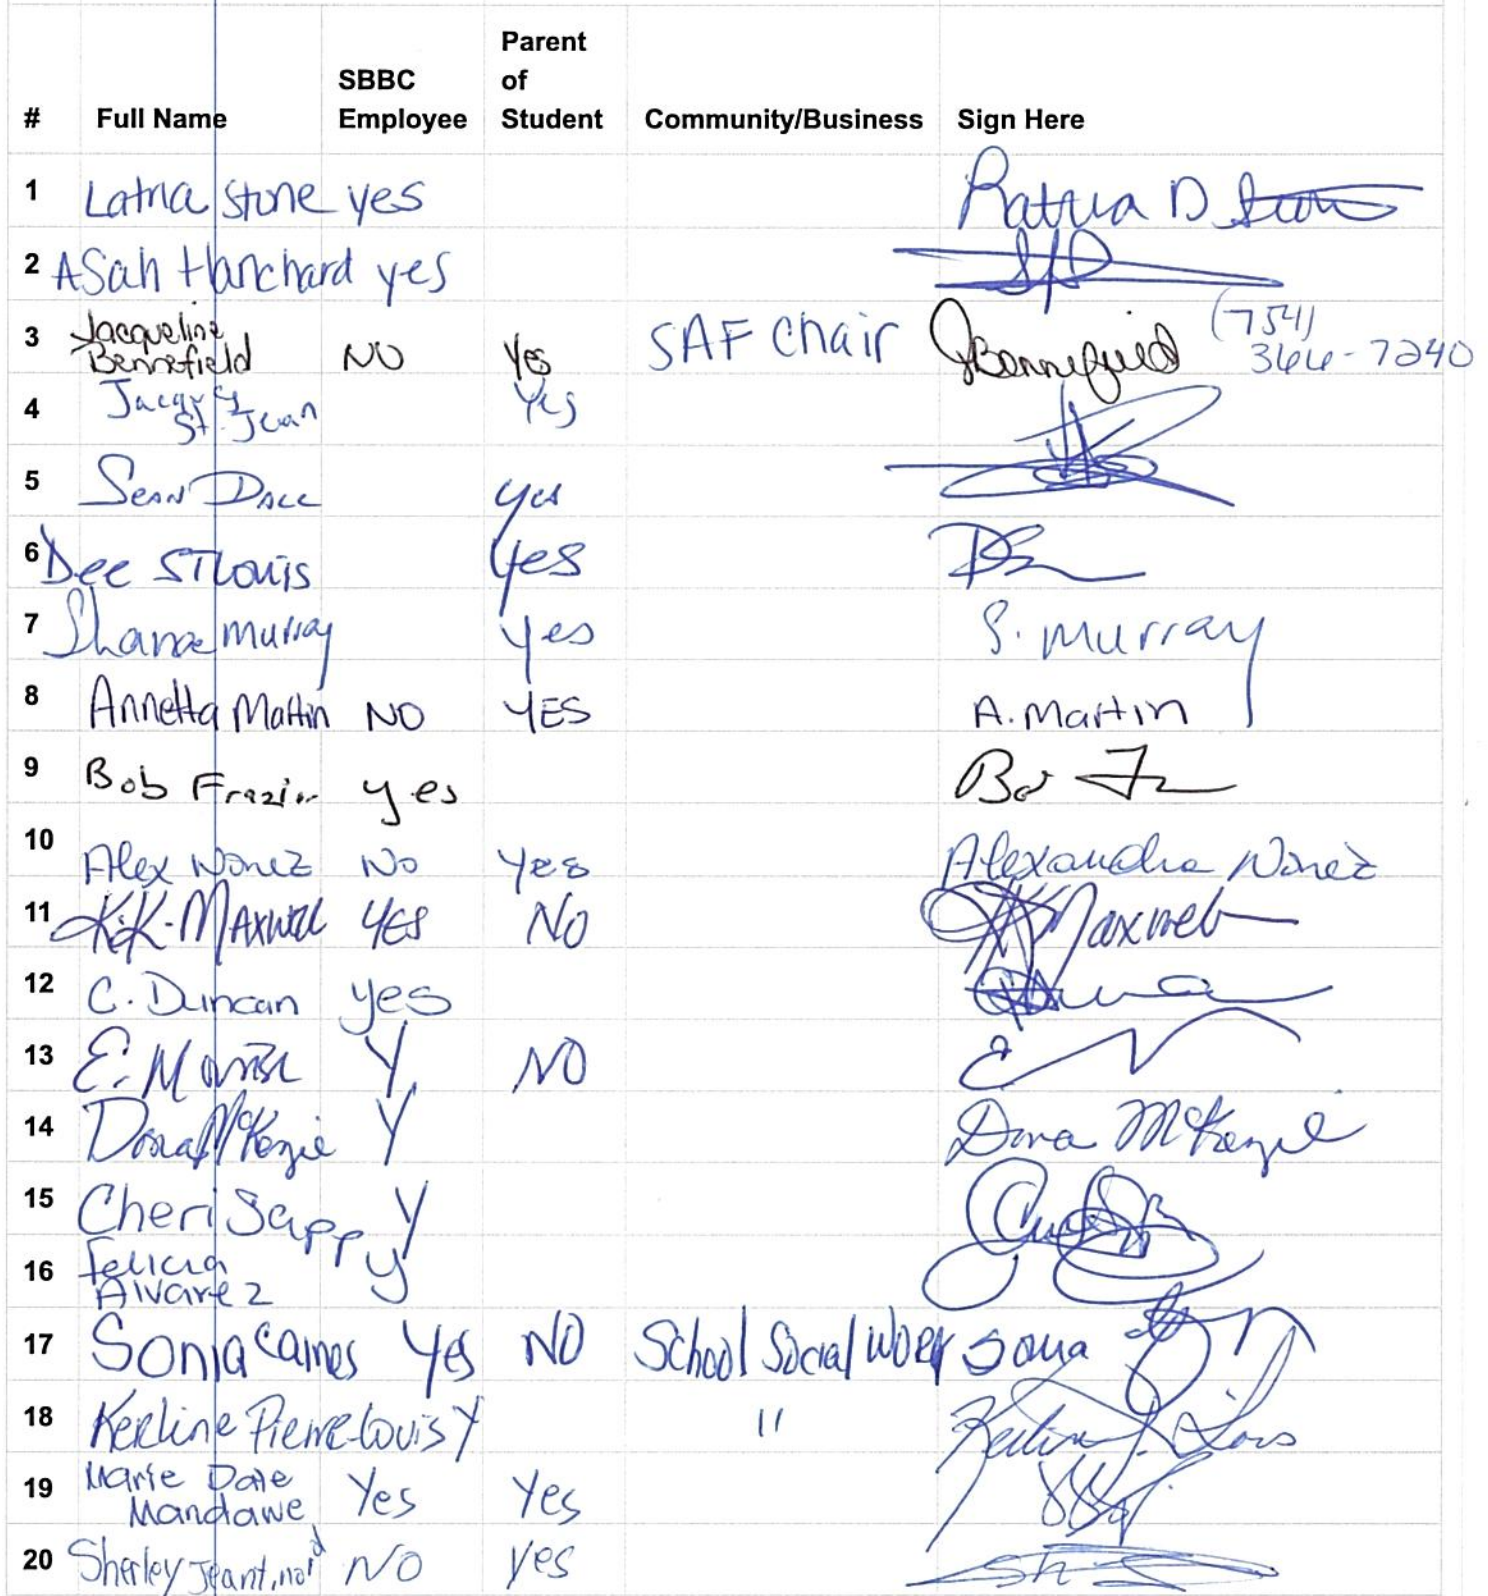 # Full Name SBBC Employee Parent of Student Community/Business Sign Here
1 Latria Stone yes
2 ASah Hanchard yes
3 Jacqueline Bennefield NO Yes SAF Chair JBennefield (754) 366-7240
4 Jacques St. Jean Yes
5 Sean Dall yes
6 Dee STLouis Yes
7 murray yes S. murray
8 Annetta Martin NO YES A. Martin
9 Bob Frazier yes
10 Alex Nonez No Yes Alexandra Nonez
11 K.K. Maxwell YES NO Maxwell
12 C. Duncan yes
13 E. Y NO
14 Dona McKenzie Y Dona McKenzie
15 Cheri Sapp Y
16 Felicia Alvarez y
17 Sonia Caines Yes NO School Social Worker Sonia
18 Kerline Pierre-Louis Y "
19 Marie Dale Mandawe Yes Yes
20 Sherley NO Yes